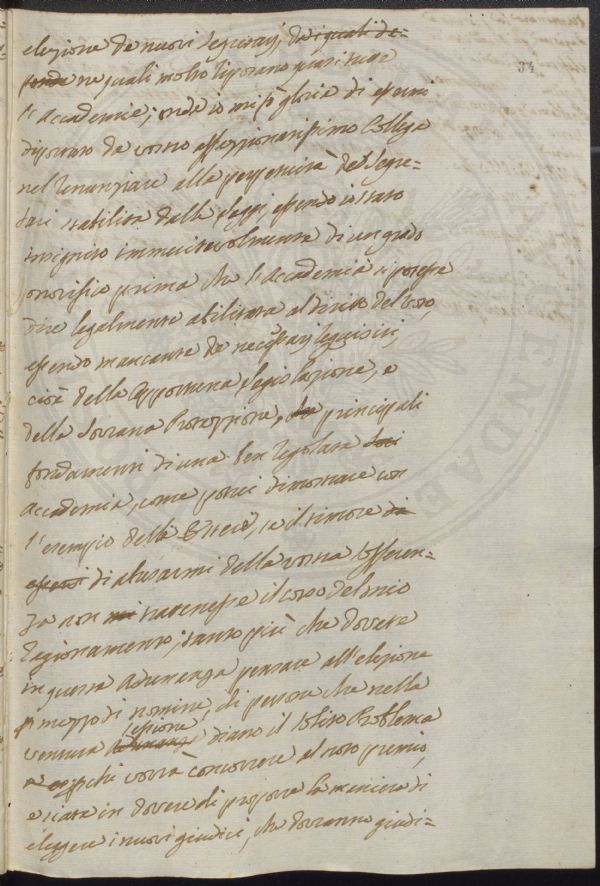 34
elezione de nuovi Segretarj, da quali de=
ne quali molto riposano quasi tutte
le Accademie; onde io mi fò gloria di essermi
dipartito da vostro affezzionatissimo Collega
nel renunziare alla perpetuità de Segre=
tarj stabilita dalle leggi, essendo io stato
insignito immeritevolmente di un grado
onorifico prima che l'Accademia si potesse
dire legalmente abilitata al diritto del voto,
essendo mancante de necessarj requisiti,
cioè della opportuna legislazione, e
della Sovrana Protezzione, principali
fondamenti di una ben regolata
Accademia, come potrei dimostrare con
l'esempio delle se il timore di
di abusarmi della vostra sofferen=
za non mi trattenesse il corso del mio
ragionamento; tanto più che dovete
in questa Adunanza pensare all'elezione
p mezzo di nomine, di persone che nella
ventura sessione diano il solito Problema
a chi vorrà concorrere al noto premio,
e siate in dovere di proporre la maniera di
eleggere i nuovi giudici, che dovranno giudi=